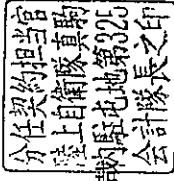 分任契約担当官
陸上自衛隊真駒
内駐屯地第325
会計隊長之印